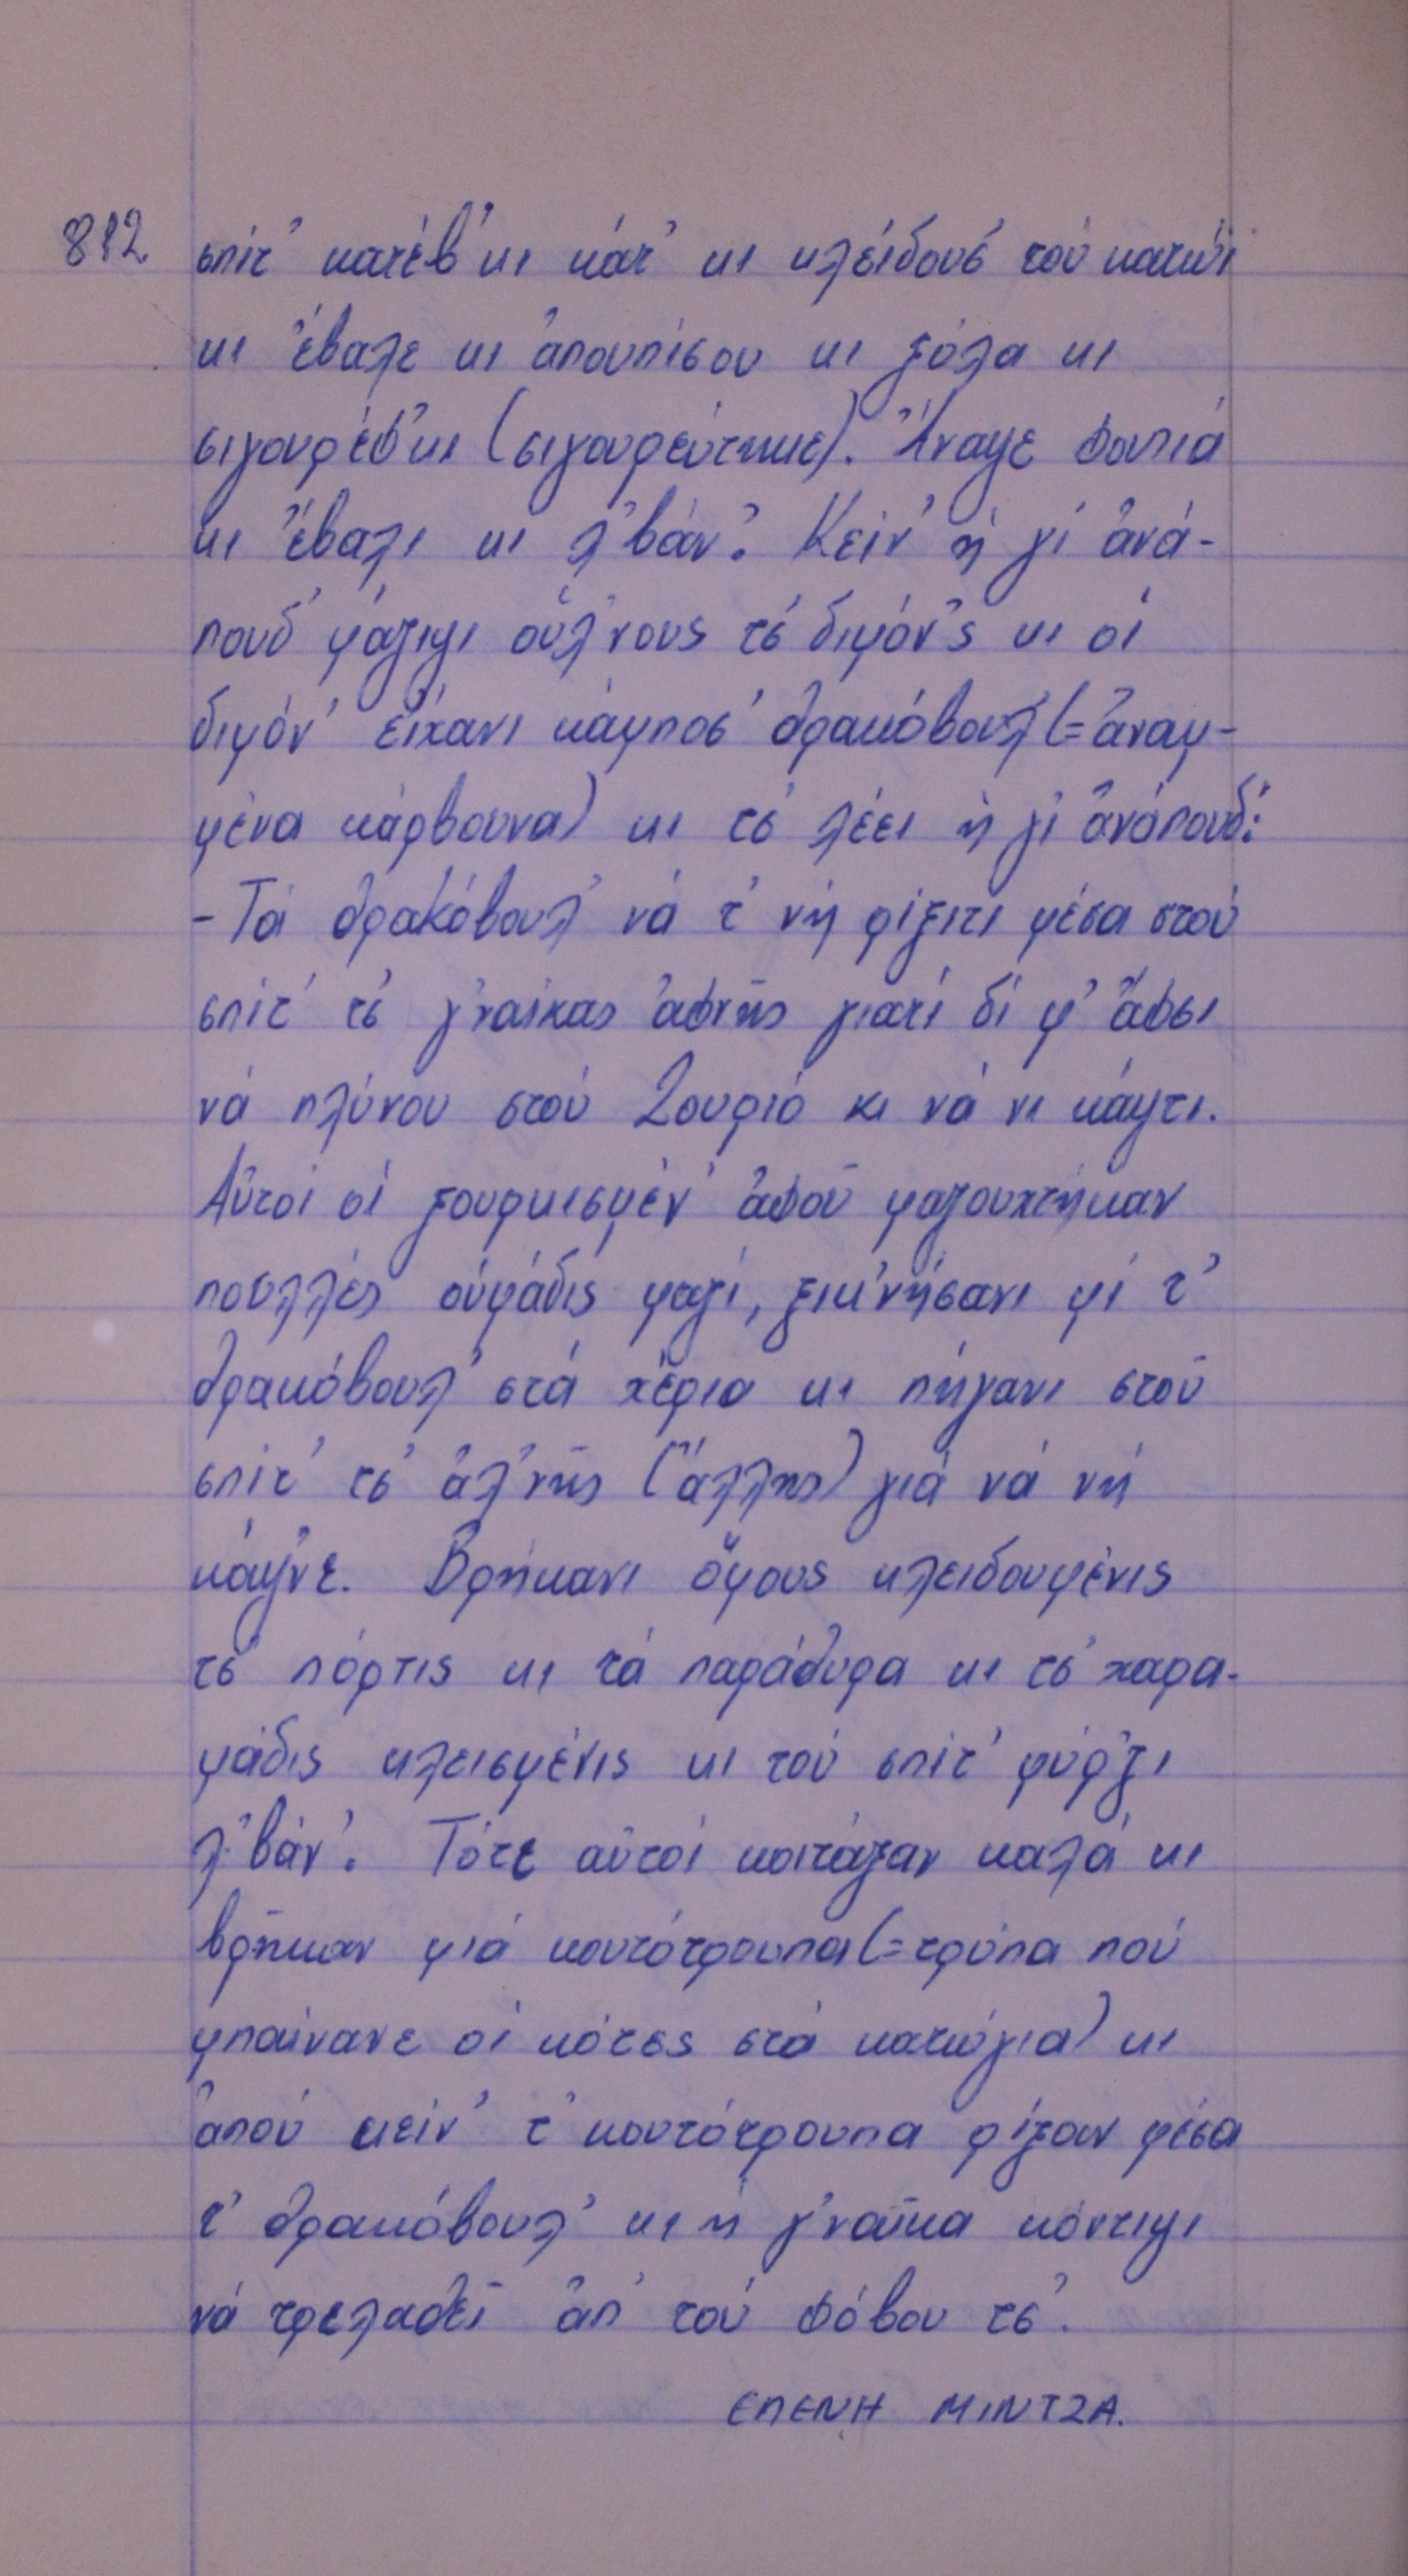 812
σπίτ' κατέβ'κι κάτ' κι κλείδουσ' τού κατώϊ
κι ἔβαλε κι ἀπουπίσου κι ξύλα κι
σιγουρέφ'κι (σιγουρεύτηκε). Ἄναψε φουτιά
κι ἔβαλι κι λ'βάν'. Κείν' ἡ γἰ ἀνά-
πουδ' μάζιψι οὗλ'νους τσ' διμόν'ς κι οἱ
διμόν' εἴχανι κάμποσ' θρακόβουλ' (=ἀναμ-
μένα κάρβουνα) κι τσ' λέει ἡ γἰ ἀνάπουδ':
-Τά θρακόβουλ' νά τ' νή ρίξιτι μέσα στού
σπίτ' τσ' γ'ναίκας ἀφνῆς γιατί δί μ' ἄφσι
νά πλύνου στού Ζουριό κι νά νι κάψτι.
Αὐτοί οἱ ξουρκισμέν' ἀφοῦ μαζουχτήκαν
πουλλές οὑμάδις μαζί, ξικ'νήσανι μί τ'
θρακόβουλ' στά χέρια κι πήγανι στοῦ
σπίτ' τσ' ἀλ'νῆς (ἄλλης) γιά νά νή
κάψ'νε. Βρήκανι ὅμους κλειδουμένις
τσ' πόρτις κι τά παράθυρα κι τσ' χαρα-
μάδις κλεισμένις κι τού σπίτ' μύρ'ζι
λ'βάν'. Τότε αὐτοί κοιτάξαν καλά κι
βρῆκαν μιά κουτότρουπα (=τρύπα πού
μπαίνανε οἱ κότες στά κατώγια) κι
ἀπού κείν' τ' κουτότρουπα ρίξαν μέσα
τ' θρακόβουλ' κι ἡ γ'ναῖκα κόντιψι
νά τρελαθεῖ ἀπ' τού φόβου τσ'.
ΕΛΕΝΗ ΜΙΝΤΖΑ.